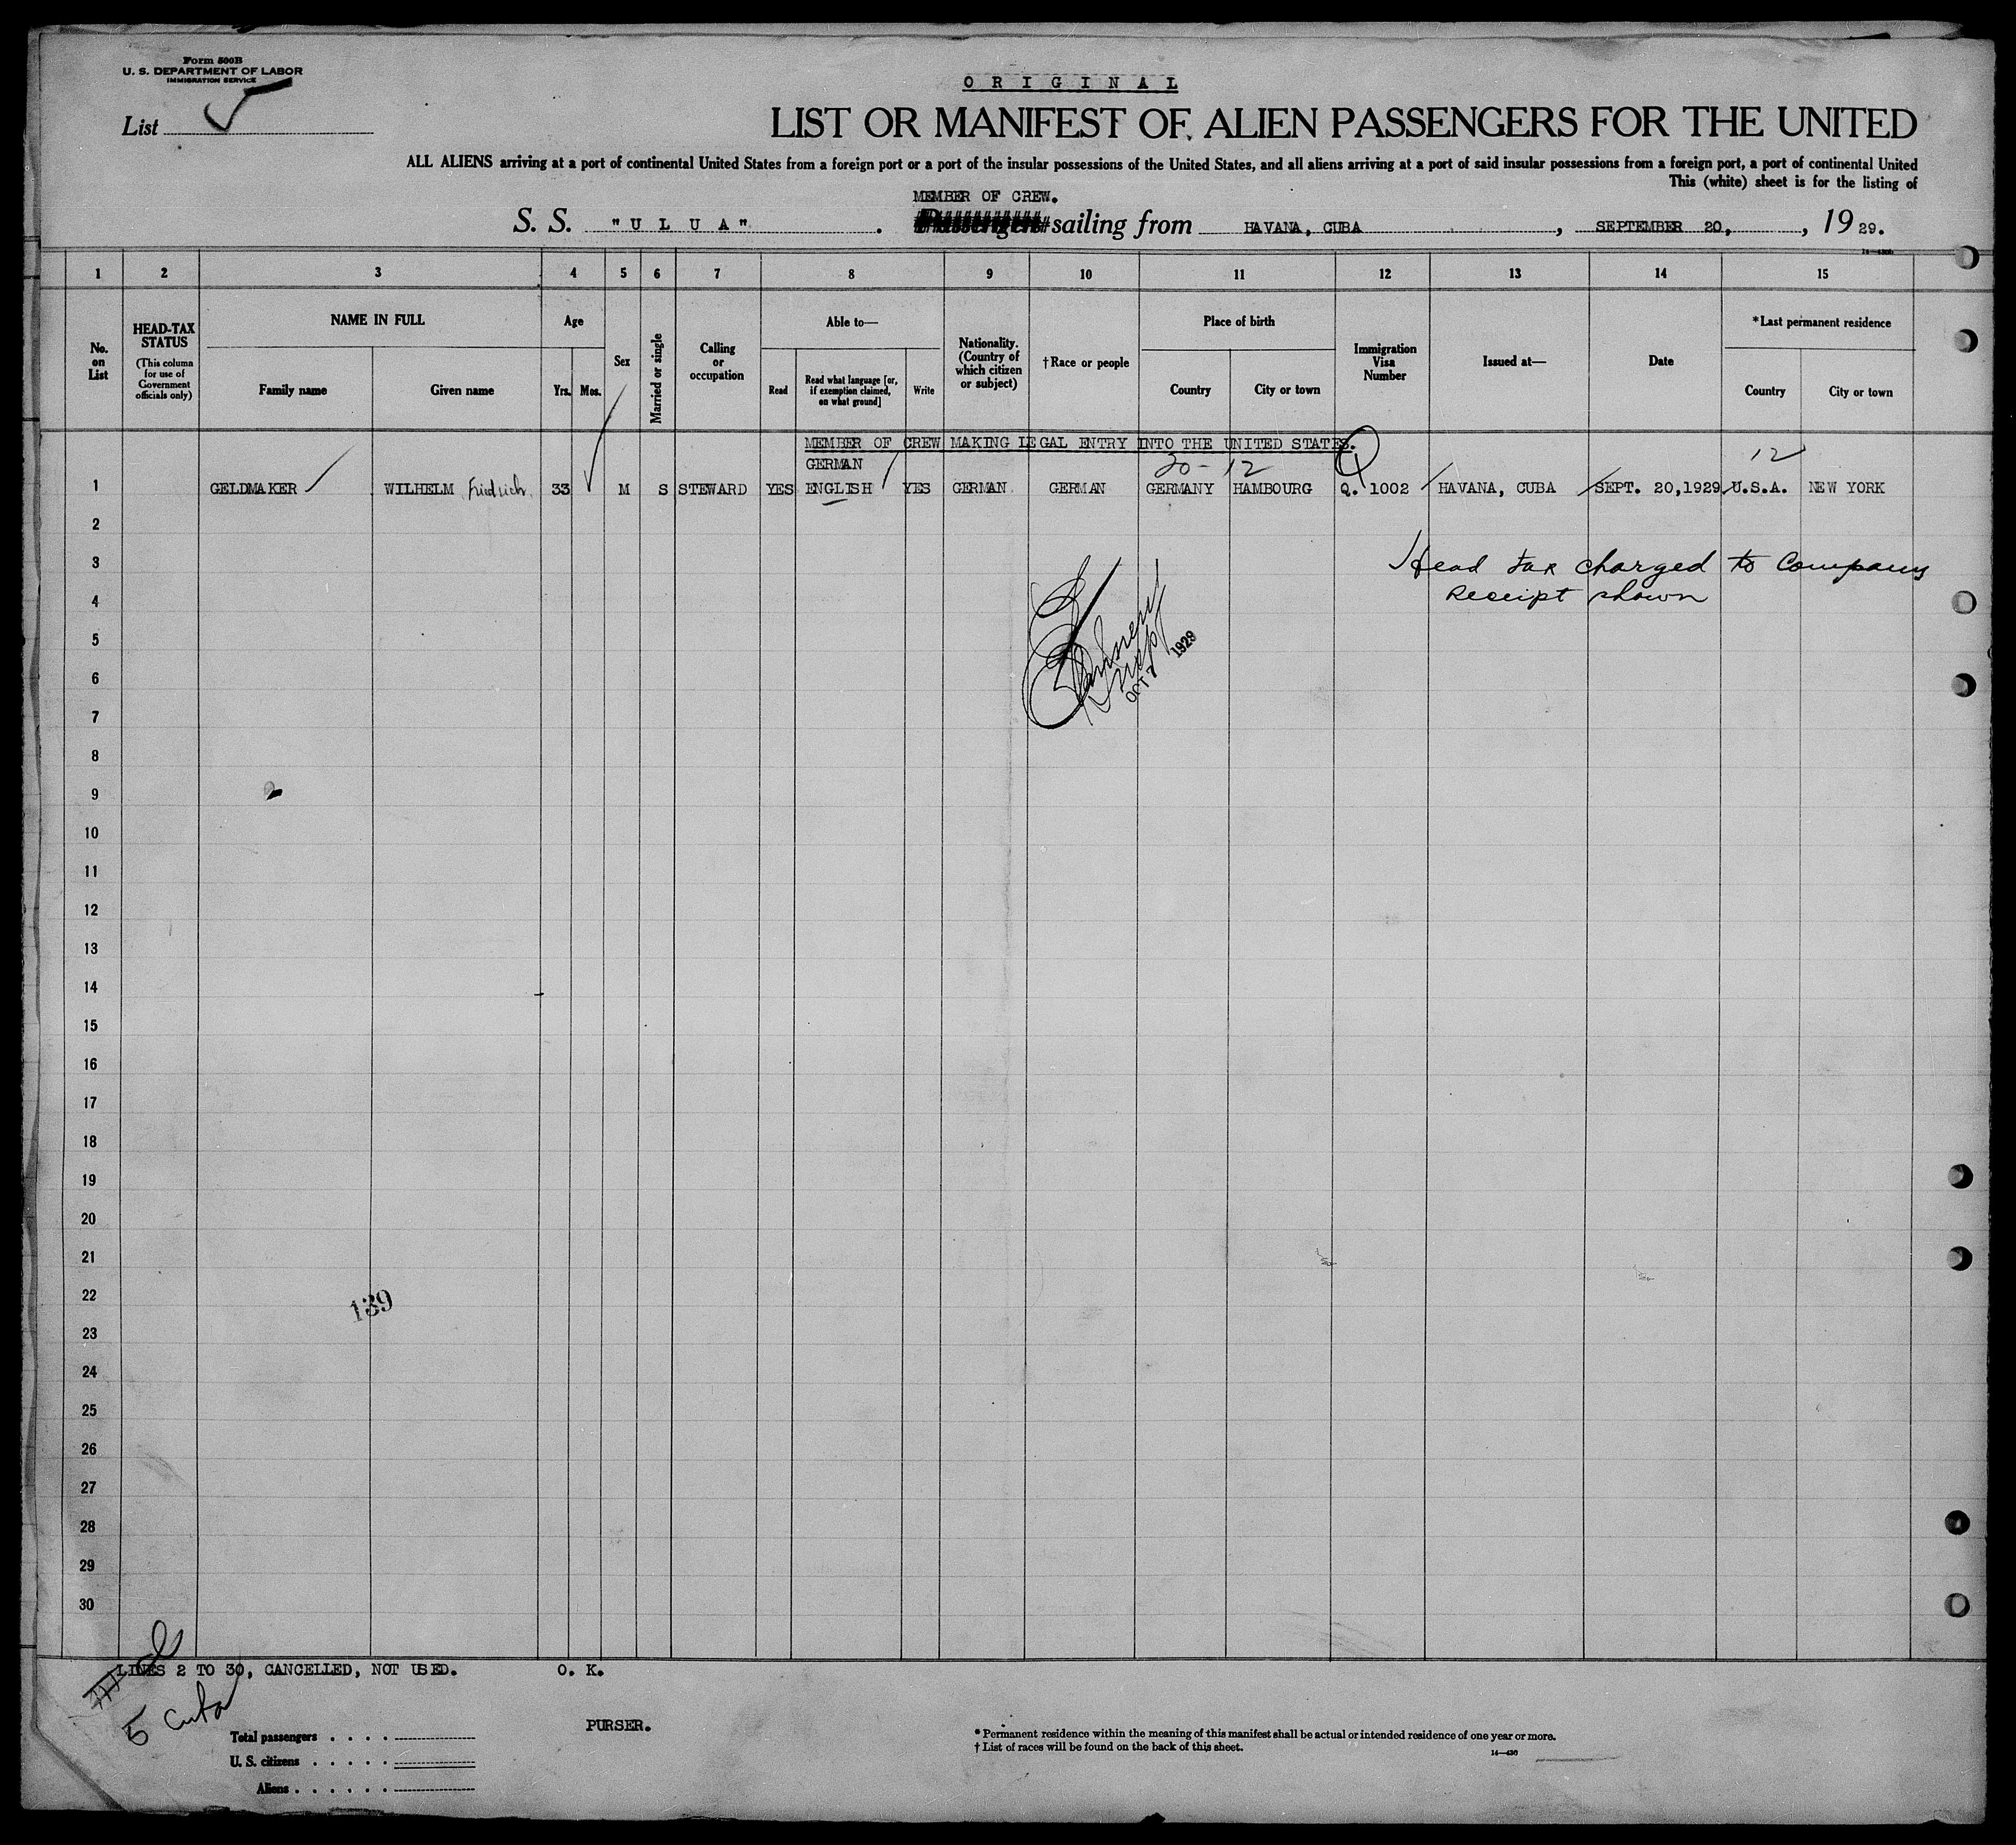 Form 500B
U. S. DEPARTMENT OF LABOR
IMMIGRATION SERVICE
List
O R I G I N A L
LIST OR MANIFEST OF ALIEN PASSENGERS FOR THE UNITED
ALL ALIENS arriving at a port of continental United States from a foreign port or a port of the insular possessions of the United States, and all aliens arriving at a port of said insular possessions from a foreign port, a port of continental United
This (white) sheet is for the listing of
MEMBER OF CREW.
S. S. "U L U A" . Passengers sailing from HAVANA, CUBA , SEPTEMBER 20, , 19 29.
1 2 3 4 5 6 7 8 9 10 11 12 13 14 15
No. on List
HEAD-TAX STATUS
(This column for use of Government officials only)
NAME IN FULL
Family name Given name
Age
Yrs. Mos.
Sex
Married or single
Calling or occupation
Able to—
Read
Read what language [or, if exemption claimed, on what ground]
Write
Nationality. (Country of which citizen or subject)
†Race or people
Place of birth
Country City or town
Immigration Visa Number
Issued at—
Date
*Last permanent residence
Country City or town
MEMBER OF CREW MAKING LEGAL ENTRY INTO THE UNITED STATES.
GERMAN 20-12 Q 12
1 GELDMAKER WILHELM Friedrich 33 M S STEWARD YES ENGLISH YES GERMAN GERMAN GERMANY HAMBOURG Q. 1002 HAVANA, CUBA SEPT. 20,1929 U.S.A. NEW YORK
2
3 Head tax charged to Company
4 Receipt shown
5 1929
6 OCT 7
7
8
9
10
11
12
13
14
15
16
17
18
19
20
21
22
139
23
24
25
26
27
28
29
30
LINES 2 TO 30, CANCELLED, NOT USED. O. K.
5 Cuba
PURSER.
Total passengers . . . .
U. S. citizens . . . . .
Aliens . . . . . .
* Permanent residence within the meaning of this manifest shall be actual or intended residence of one year or more.
† List of races will be found on the back of this sheet.
14—430